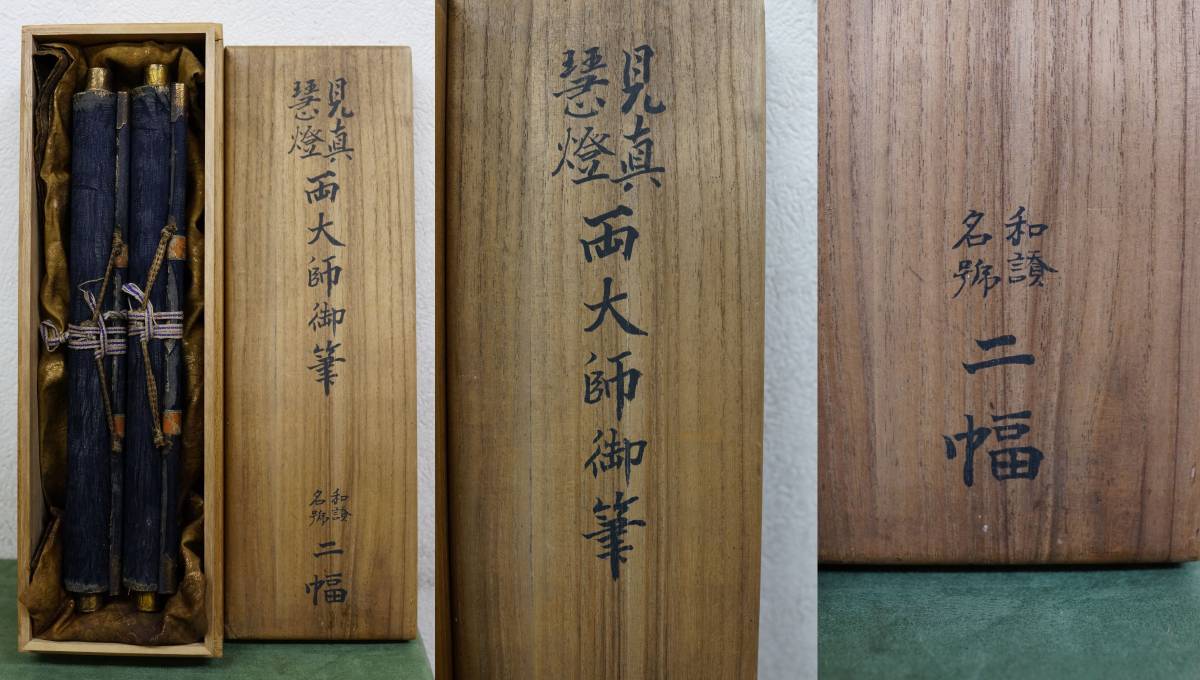 見真
慧燈
両大師御筆
和讃
名號
二幅
見真
慧燈
両大師御筆
和讃
名號
二幅